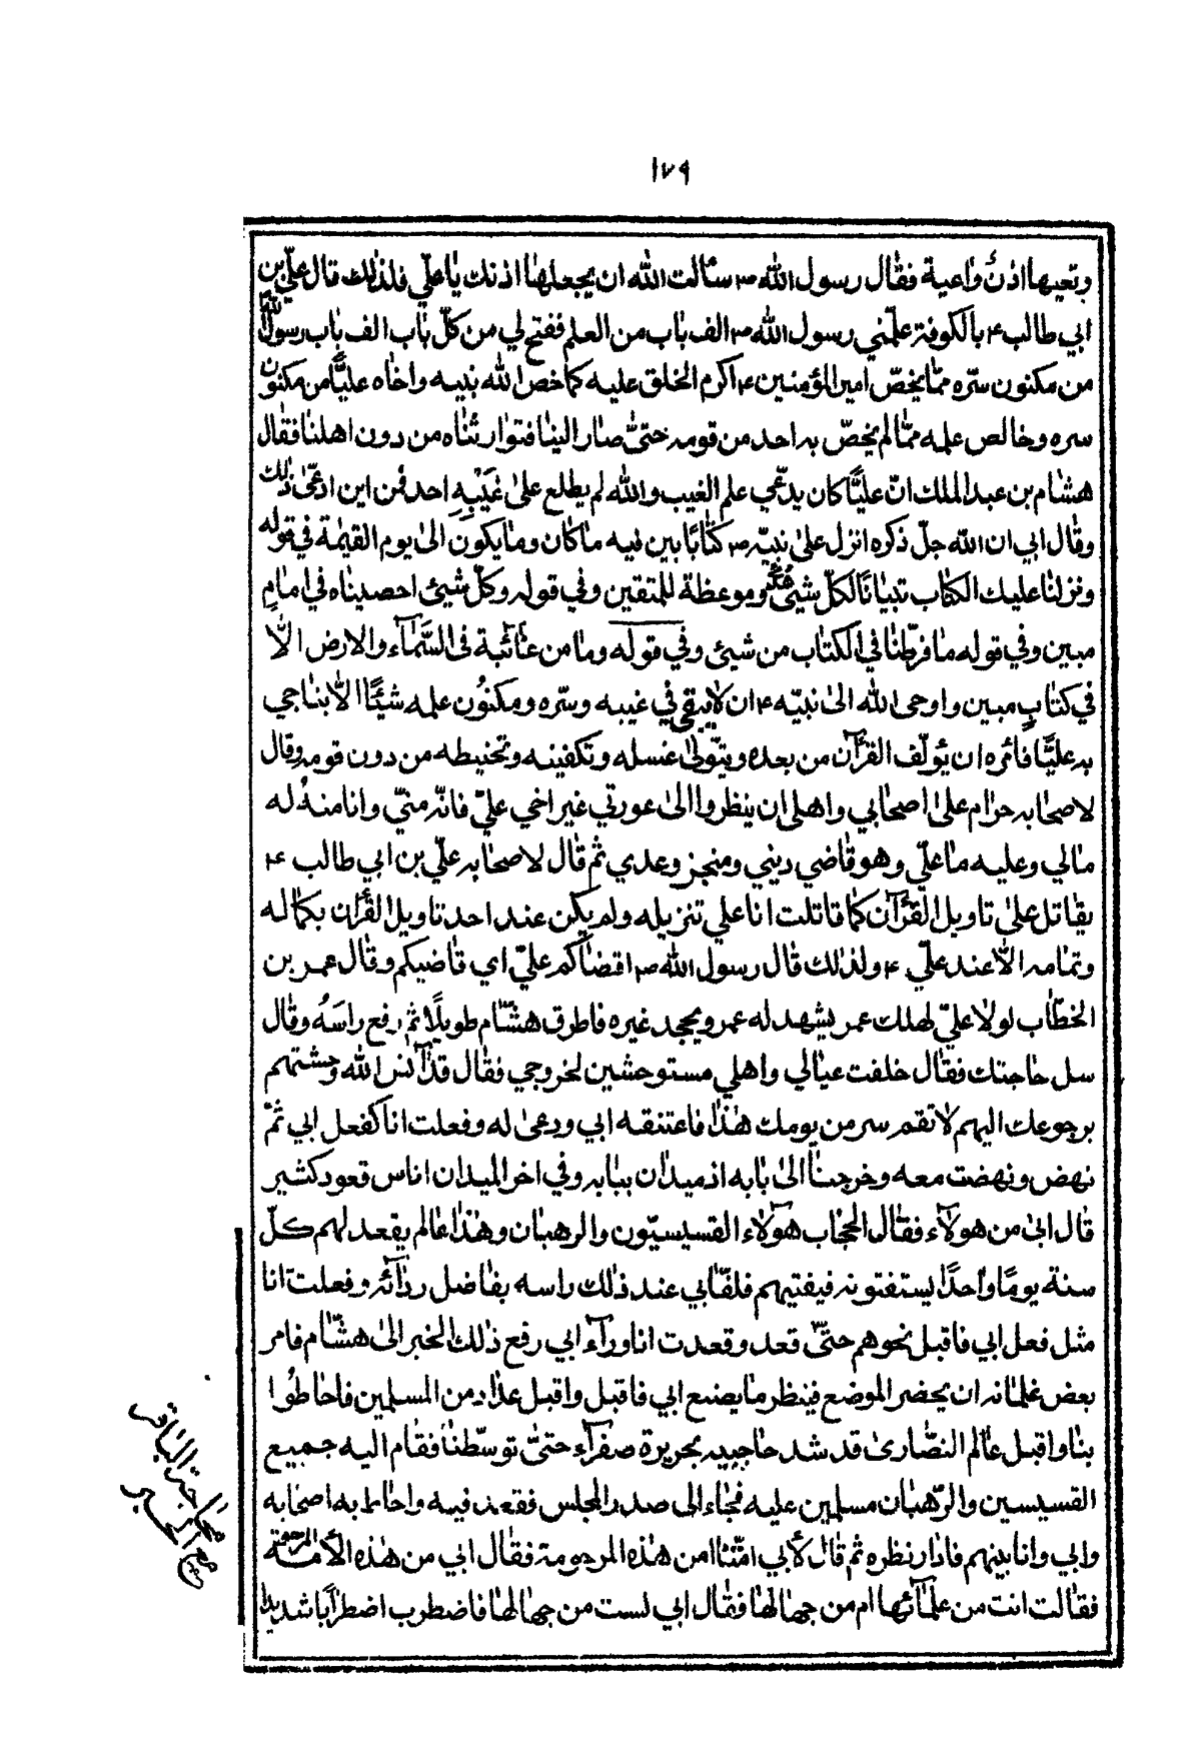 ١٧٩
وتعيها اذن واعية فقال رسول الله ص سئالت الله ان يجعلها اذنك يا علي فلذلك قال علي بن
ابي طالب ع بالكوفة علمني رسول الله ص الف باب من العلم ففتح لي من كل باب الف باب رسول الله
من مكنون سره مما يخص امير المؤمنين ع اكرم الخلق عليه كما خص الله نبيه واخاه عليا من مكنون
سره وخالص علمه مما لم يخص به احد من قومه حتى صار الينا فتوارثناه من دون اهلنا فقال
هشام بن عبد الملك ان عليا كان يدعي علم الغيب والله لم يطلع على غيبه احد فمن اين ادعى ذلك
وقال ابي ان الله جل ذكره انزل على نبيه ص كتابا بين فيه ما كان وما يكون الى يوم القيمة في قوله
ونزلنا عليك الكتاب تبيانا لكل شيئ هدى وموعظة للمتقين وفي قوله وكل شيئ احصيناه في امام
مبين وفي قوله ما فرطنا في الكتاب من شيئ وفي قوله وما من غائبة في السماء والارض الا
في كتاب مبين واوحى الله الى نبيه ع ان لا يبقى في غيبه وسره ومكنون علمه شيئا الا يناجي
به عليا فامره ان يؤلف القرآن من بعده ويتولى غسله وتكفينه وتحنيطه من دون قومه وقال
لاصحابه حرام على اصحابي واهلي ان ينظروا الى عورتي غير اخي علي فانه مني وانا منه له
مالي وعليه ما علي وهو قاضي ديني ومنجز وعدي ثم قال لاصحابه علي بن ابي طالب ع
يقاتل على تاويل القرآن كما قاتلت انا علي تنزيله ولم يكن عند احد تاويل القرآن بكماله
وتمامه الا عند علي ع ولذلك قال رسول الله ص اقضاكم علي اي قاضيكم وقال عمر بن
الخطاب لولا علي لهلك عمر يشهد له عمر ويجحد غيره فاطرق هشام طويلا ثم رفع راسه وقال
سل حاجتك فقال خلفت عيالي واهلي مستوحشين لخروجي فقال قد آنس الله وحشتهم
برجوعك اليهم لا تقم سر من يومك هذا فاعتنقه ابي ودعى له وفعلت انا كفعل ابي ثم
نهض ونهضت معه وخرجنا الى بابه اذ ميدان ببابه وفي اخر الميدان اناس قعود كثير
قال ابي من هولاء فقال الحجاب هولاء القسيسيون والرهبان وهذا عالم يقعد لهم كل
سنة يوما واحدا يستفتونه فيفتيهم فلف ابي عند ذلك راسه بفاضل ردائه وفعلت انا
مثل فعل ابي فاقبل نحوهم حتى قعد وقعدت انا وراء ابي رفع ذلك الخبر الى هشام فامر
بعض غلمانه ان يحضر الموضع فينظر ما يصنع ابي فاقبل واقبل عداد من المسلمين فاحاطوا
بنا واقبل عالم النصارى قد شد حاجبيه بحريرة صفراء حتى توسطنا فقام اليه جميع
القسيسين والرهبان مسلمين عليه فجاء الى صدر المجلس فقعد فيه واحاط به اصحابه
وابي وانا بينهم فادار نظره ثم قال لأبي امنا امن هذه المرحومة فقال ابي من هذه الأمة المرحومة
فقالت انت من علمائها ام من جهالها فقال ابي لست من جهالها فاضطرب اضطرابا شديدا
محاجة الباقر
مع الحبر